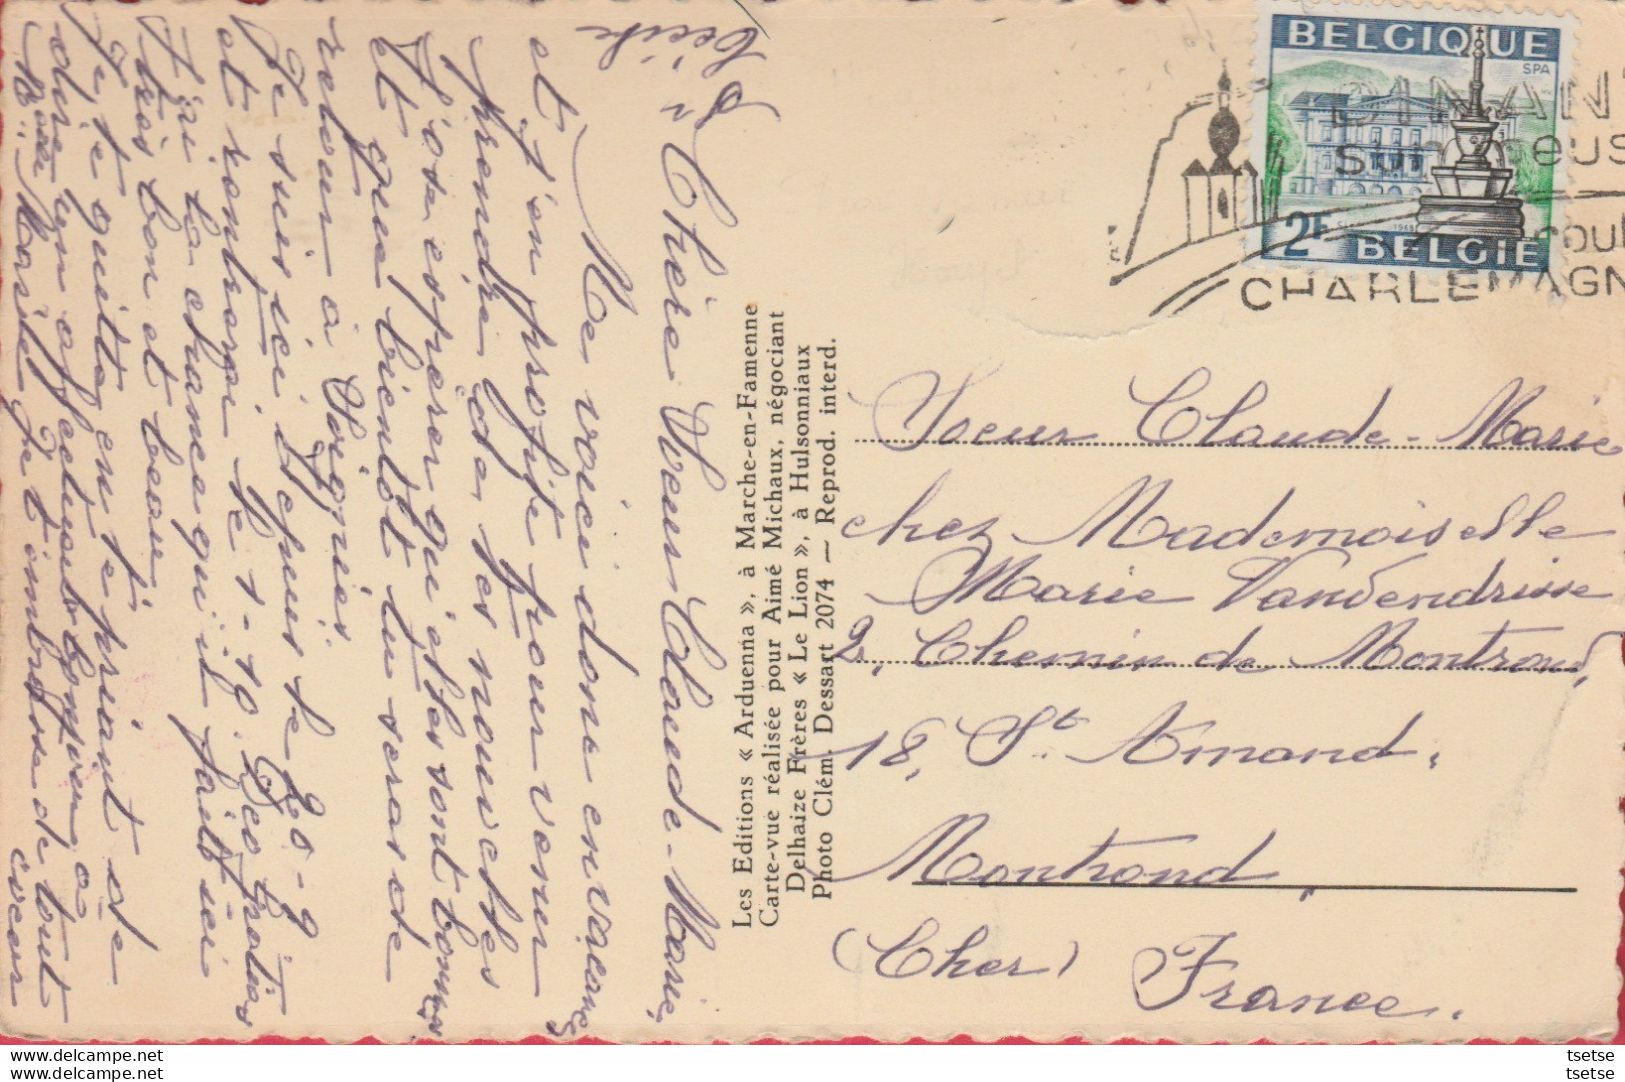 Chère Soeur Claude-Marie,
Me voici donc en vacances
et j'en profite pour venir
prendre de tes nouvelles
J'ose espérer qu'elles sont bonnes
et que bientôt tu seras de
retour à Soignies.
Je suis ici depuis le 20-9
et rentrerai le 1-10.
J'ai la chance qu'il fait ici
très bon et beau.
Je te quitte en te priant de
croire en
Maria Marille qui t'embrasse de tout
coeur
Les Editions « Arduenna », à Marche-en-Famenne
Carte-vue réalisée pour Aimé Michaux, négociant
Delhaize Frères « Le Lion », à Hulsonniaux
Photo Clém. Dessart 2074 — Reprod. interd.
BELGIQUE
SPA
2F
BELGIE
DINANT
sur
CHARLEMAGN
Soeur Claude-Marie
chez Mademoiselle
Marie Vandendrisse
2, Chemin de Montrond,
18, St Amand.
Montrond,
(Cher) France.
tsetse delcampe.net
tsetse delcampe.net